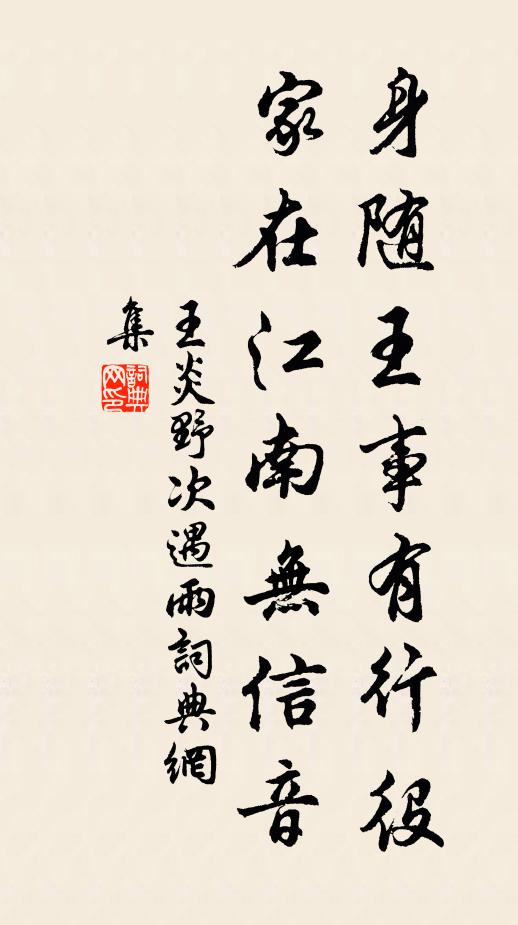 身随王事有行役
家在江南無信音
王炎野次遇雨詞典網
集
詞典
网印